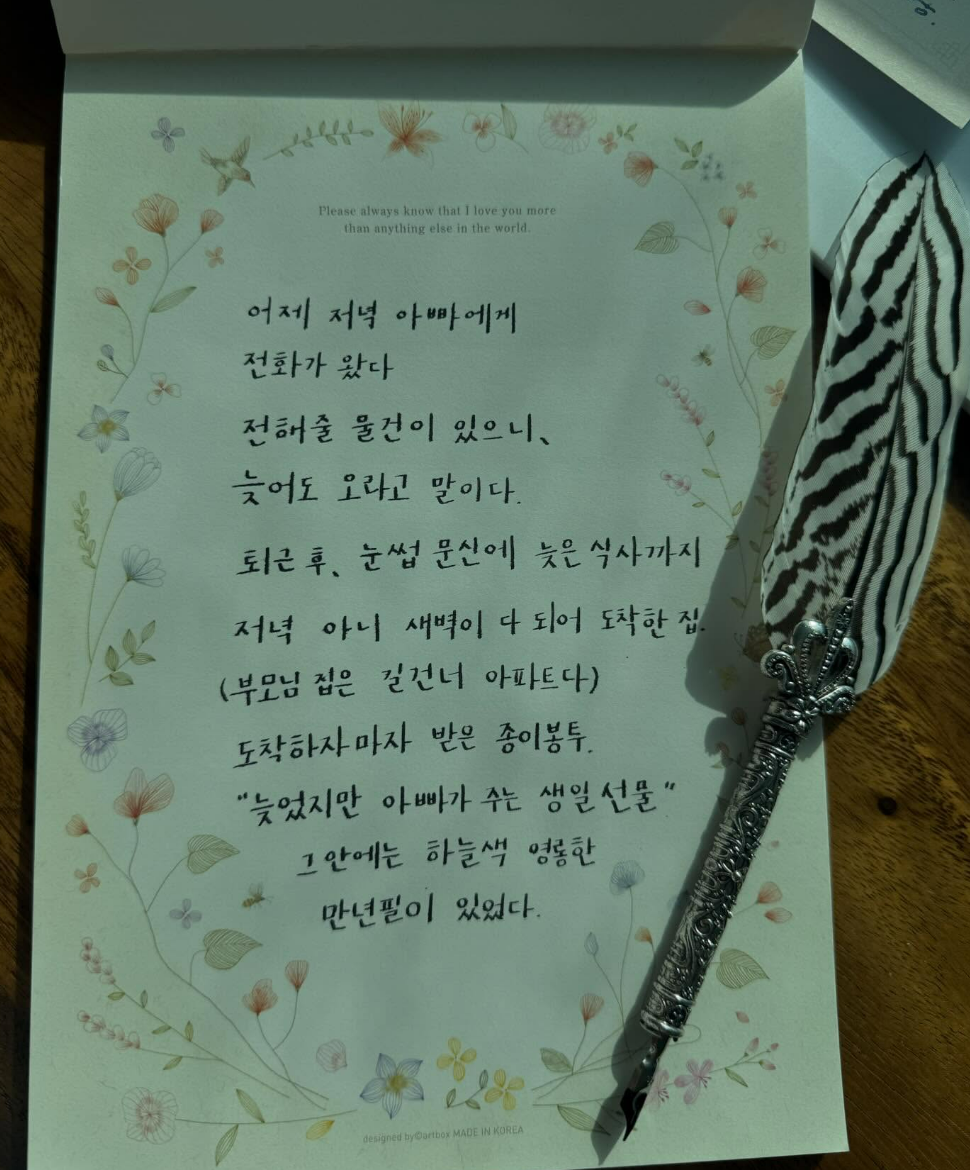 Please always know that I love you more
than anything else in the world.
어제 저녁 아빠에게
전화가 왔다
전해줄 물건이 있으니、
늦어도 오라고 말이다.
퇴근 후、 눈썹 문신에 늦은 식사까지
저녁 아니 새벽이 다 되어 도착한 집.
(부모님 집은 길건너 아파트다)
도착하자마자 받은 종이봉투.
"늦었지만 아빠가 주는 생일선물"
그 안에는 하늘색 영롱한
만년필이 있었다.
designed by©artbox MADE IN KOREA